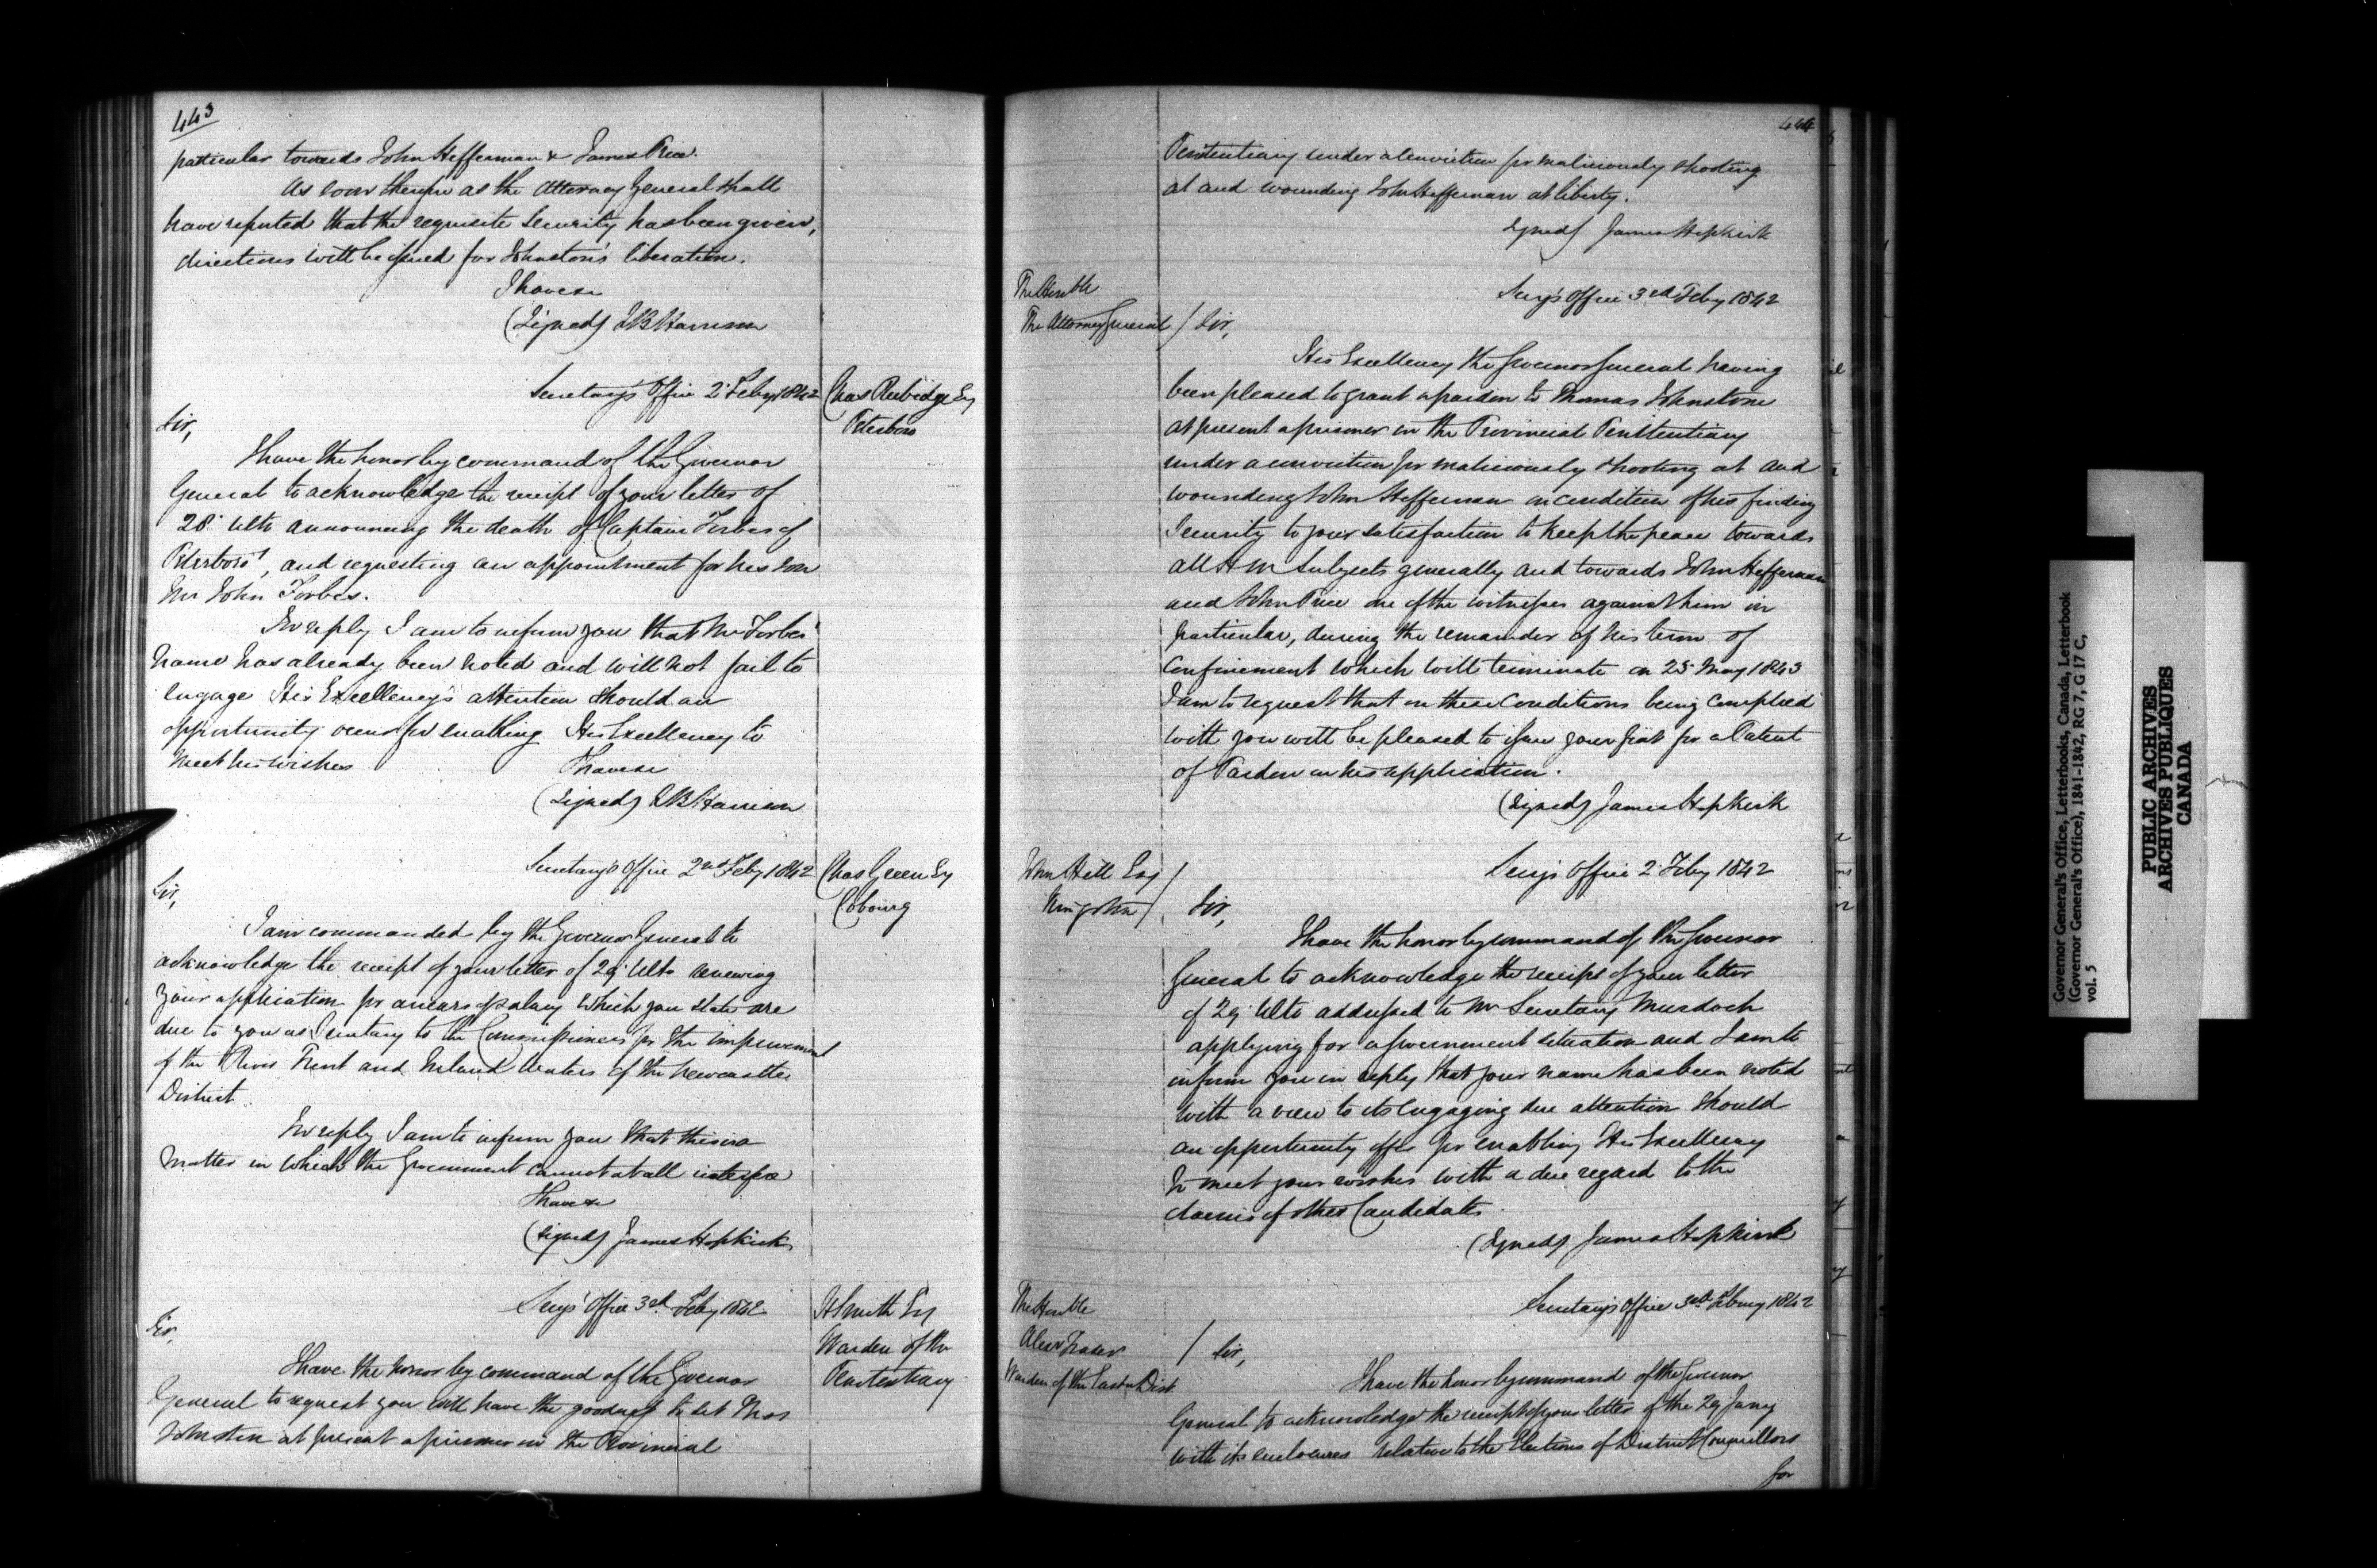 443
particular towards John Heffernan & James Price.
As soon therefore as the Attorney General shall
have reported that the requisite Security has been given,
directions will be issued for Johnston's liberation.
I have &c
(Signed) S B Harrison
Secretary's Office 2 Feby 1842
Chas Rubidge Esq
Peterboro
Sir,
I have the honor by command of the Governor
General to acknowledge the receipt of your letter of
28 Ulto announcing the death of Captain Forbes of
Peterboro', and requesting an appointment for his son
Mr John Forbes.
In reply I am to inform you that Mr Forbes'
name has already been noted and will not fail to
engage His Excellency's attention should an
opportunity occur for enabling His Excellency to
meet his wishes
I have &c
(Signed) S B Harrison
Secretary's Office 2nd Feby 1842
Chas Green Esq
Cobourg
Sir,
I am commanded by the Governor General to
acknowledge the receipt of your letter of 29 Ulto renewing
your application for arrears of salary which you state are
due to you as Secretary to the Commissioners for the improvement
of the River Trent and Inland Waters of the Newcastle
District.
In reply I am to inform you that this is a
matter in which the Government cannot at all interfere
I have &c
(Signed) James Hopkirk
Secy's Office 3rd Feby 1842
H Smith Esq
Warden of the
Penitentiary
Sir,
I have the honor by command of the Governor
General to request you will have the goodness to set Thos
Johnston at present a prisoner in the Provincial
444
Penitentiary under a conviction for maliciously shooting
at and wounding John Heffernan at liberty.
Signed) James Hopkirk
The Honble
The Attorney General
Secy's Office 3rd Feby 1842
Sir,
His Excellency the Governor General having
been pleased to grant a pardon to Thomas Johnstone
at present a prisoner in the Provincial Penitentiary
under a conviction for maliciously shooting at and
wounding John Heffernan on condition of his finding
Security to your satisfaction to keep the peace towards
all H M Subjects generally and towards John Heffernan
and John Price one of the witnesses against him in
particular, during the remainder of his term of
Confinement which will terminate on 25 May 1843
I am to request that on these Conditions being complied
with you will be pleased to issue your fiat for a Patent
of Pardon on his application.
(Signed) James Hopkirk
John Hill Esq
Kingston
Secy's Office 2 Feby 1842
Sir,
I have the honor by command of the Governor
General to acknowledge the receipt of your letter
of 29 Ulto addressed to Mr Secretary Murdoch
applying for a Government situation and I am to
inform you in reply that your name has been noted
with a view to its engaging due attention should
an opportunity offer for enabling His Excellency
to meet your wishes with a due regard to the
claims of other Candidates.
(Signed) James Hopkirk
The Honble
Alexr Fraser
Warden of the Eastn Dist
Secretary's Office 3rd Feby 1842
Sir,
I have the honor by command of the Governor
General to acknowledge the receipt of your letter of the 29 Jany
with its enclosures relative to the Elections of District Councillors
for
Governor General's Office, Letterbooks, Canada, Letterbook
(Governor General's Office), 1841-1842, RG 7, G 17 C,
vol. 5
PUBLIC ARCHIVES
ARCHIVES PUBLIQUES
CANADA